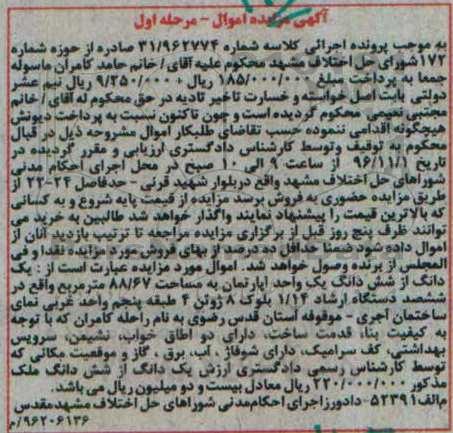 آگهی مزایده اموال - مرحله اول
به موجب پرونده اجرائی کلاسه شماره ۳۱/۹۶۲۷۷۴ صادره از حوزه شماره
۱۷۲ شورای حل اختلاف مشهد محکوم علیه آقای / خانم حامد کامران ماسوله
جمعا به پرداخت مبلغ ۱۸۵/۰۰۰/۰۰۰ ریال + ۹/۲۵۰/۰۰۰ ریال نیم عشر
دولتی بابت اصل خواسته و خسارت تاخیر تادیه در حق محکوم له آقای / خانم
مجتبی نعیمی محکوم گردیده است و چون تاکنون نسبت به پرداخت دیونش
هیچگونه اقدامی ننموده حسب تقاضای طلبکار اموال مشروحه ذیل در قبال
محکوم به توقیف وتوسط کارشناس دادگستری ارزیابی و مقرر گردیده در
تاریخ ۹۶/۱۱/۱ از ساعت ۹ الی ۱۰ صبح در محل اجرای احکام مدنی
شوراهای حل اختلاف مشهد واقع دربلوار شهید قرنی - حدفاصل ۲۴-۲۲ از
طریق مزایده حضوری به فروش برسد مزایده از قیمت پایه شروع و به کسانی
که بالاترین قیمت را پیشنهاد نمایند واگذار خواهد شد طالبین به خرید می
توانند ظرف پنج روز قبل از برگزاری مزایده مراجعه تا ترتیب بازدید آنان از
اموال داده شود ضمنا حداقل ده درصد از بهای فروش مورد مزایده نقدا و فی
المجلس از برنده وصول خواهد شد. اموال مورد مزایده عبارت است از : یک
دانگ از شش دانگ یک واحد آپارتمان به مساحت ۸۸/۶۷ مترمربع واقع در
ششصد دستگاه ارشاد ۱/۱۴ بلوک ۸ ژوتن ۴ طبقه پنجم واحد غربی نمای
ساختمان آجری - موقوفه آستان قدس رضوی به نام راحله کامران که با توجه
به کیفیت بنا، قدمت ساخت، دارای دو اطاق خواب، نشیمن، سرویس
بهداشتی، کف سرامیک، دارای شوفاژ، آب، برق، گاز و موقعیت مکانی که
توسط کارشناس رسمی دادگستری ارزش یک دانگ از شش دانگ ملک
مذکور ۲۲۰/۰۰۰/۰۰۰ ریال معادل بیست و دو میلیون ریال می باشد.
م الف ۵۲۳۹۱- دادورز اجرای احکام مدنی شوراهای حل اختلاف مشهد مقدس
۹۶۲۰۶۱۳۶/م